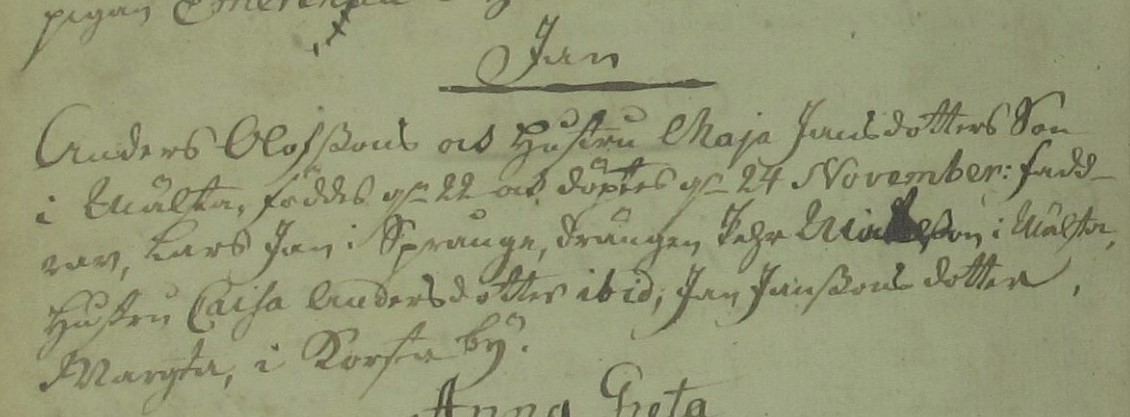 pigan
Jan
Anders Olofssons och Hustru Maja Jansdotters Son
i Wälsta, föddes d. 22 och döptes d. 24 November: fadd-
rar, Lars Jan i Sprauge, drängen Pehr i Wälsta,
Hustru Caisa Andersdotter ibid, Jan Janssons dotter,
Margta, i Korsta by.
Anna Greta